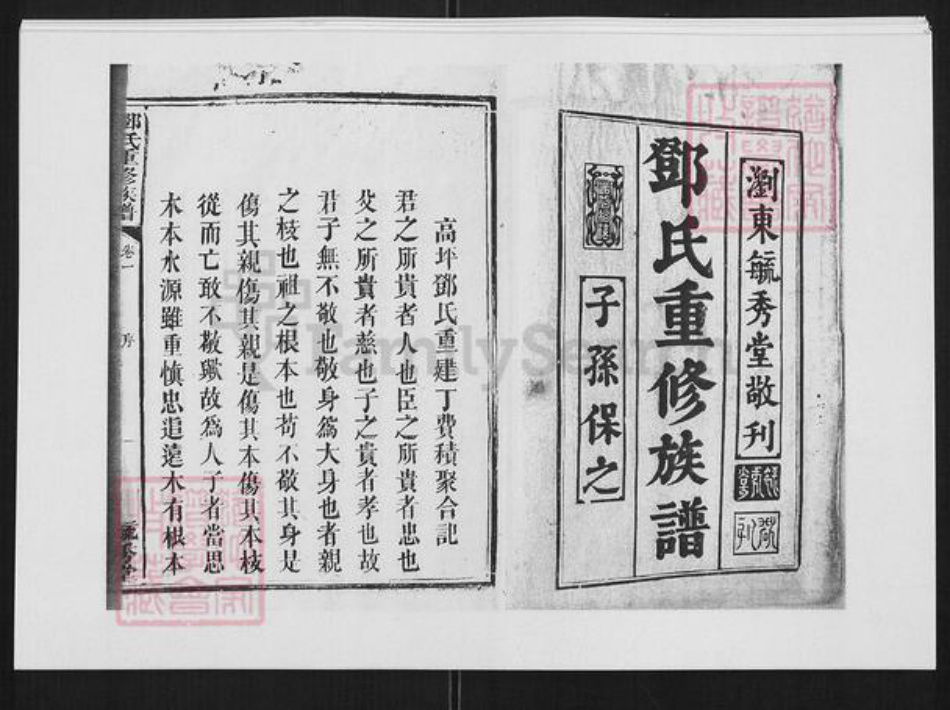 瀏東毓秀堂敬刊
鄧氏重修族譜
子孫保之
高坪鄧氏重建丁費積聚合記
君之所貴者人也臣之所貴者忠也
父之所貴者慈也子之貴者孝也故
君子無不敬也敬身為大身也者親
之枝也祖之根本也苟不敬其身是
傷其親傷其親是傷其本傷其本枝
從而亡敢不敬歟故為人子者當思
木本水源雖重慎忠追遠木有根本
鄧氏重修族譜
卷一
序
一
毓秀堂
FamilySearch